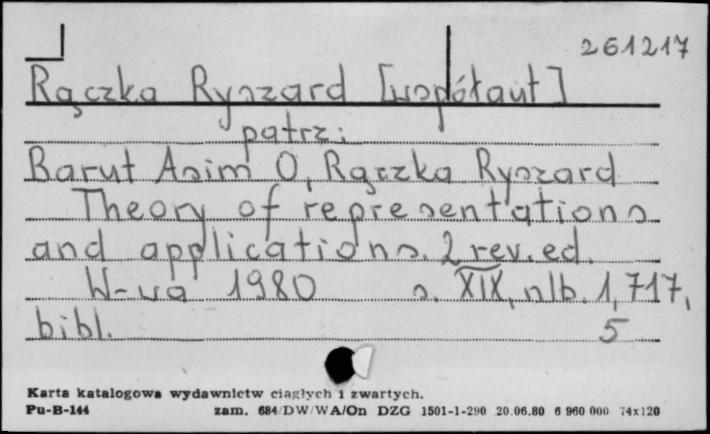 261217
Rączka Ryszard [współaut]
patrz:
Barut Asim O, Rączka Ryszard
Theory of representations
and applications. 2 rev. ed.
W-wa 1980 s. XIX, nlb. 1, 717,
bibl. 5
Karta katalogowa wydawnictw ciągłych i zwartych.
Pu-B-144 zam. 684/DW/WA/On DZG 1501-1-290 20.06.80 6 960 000 74x120